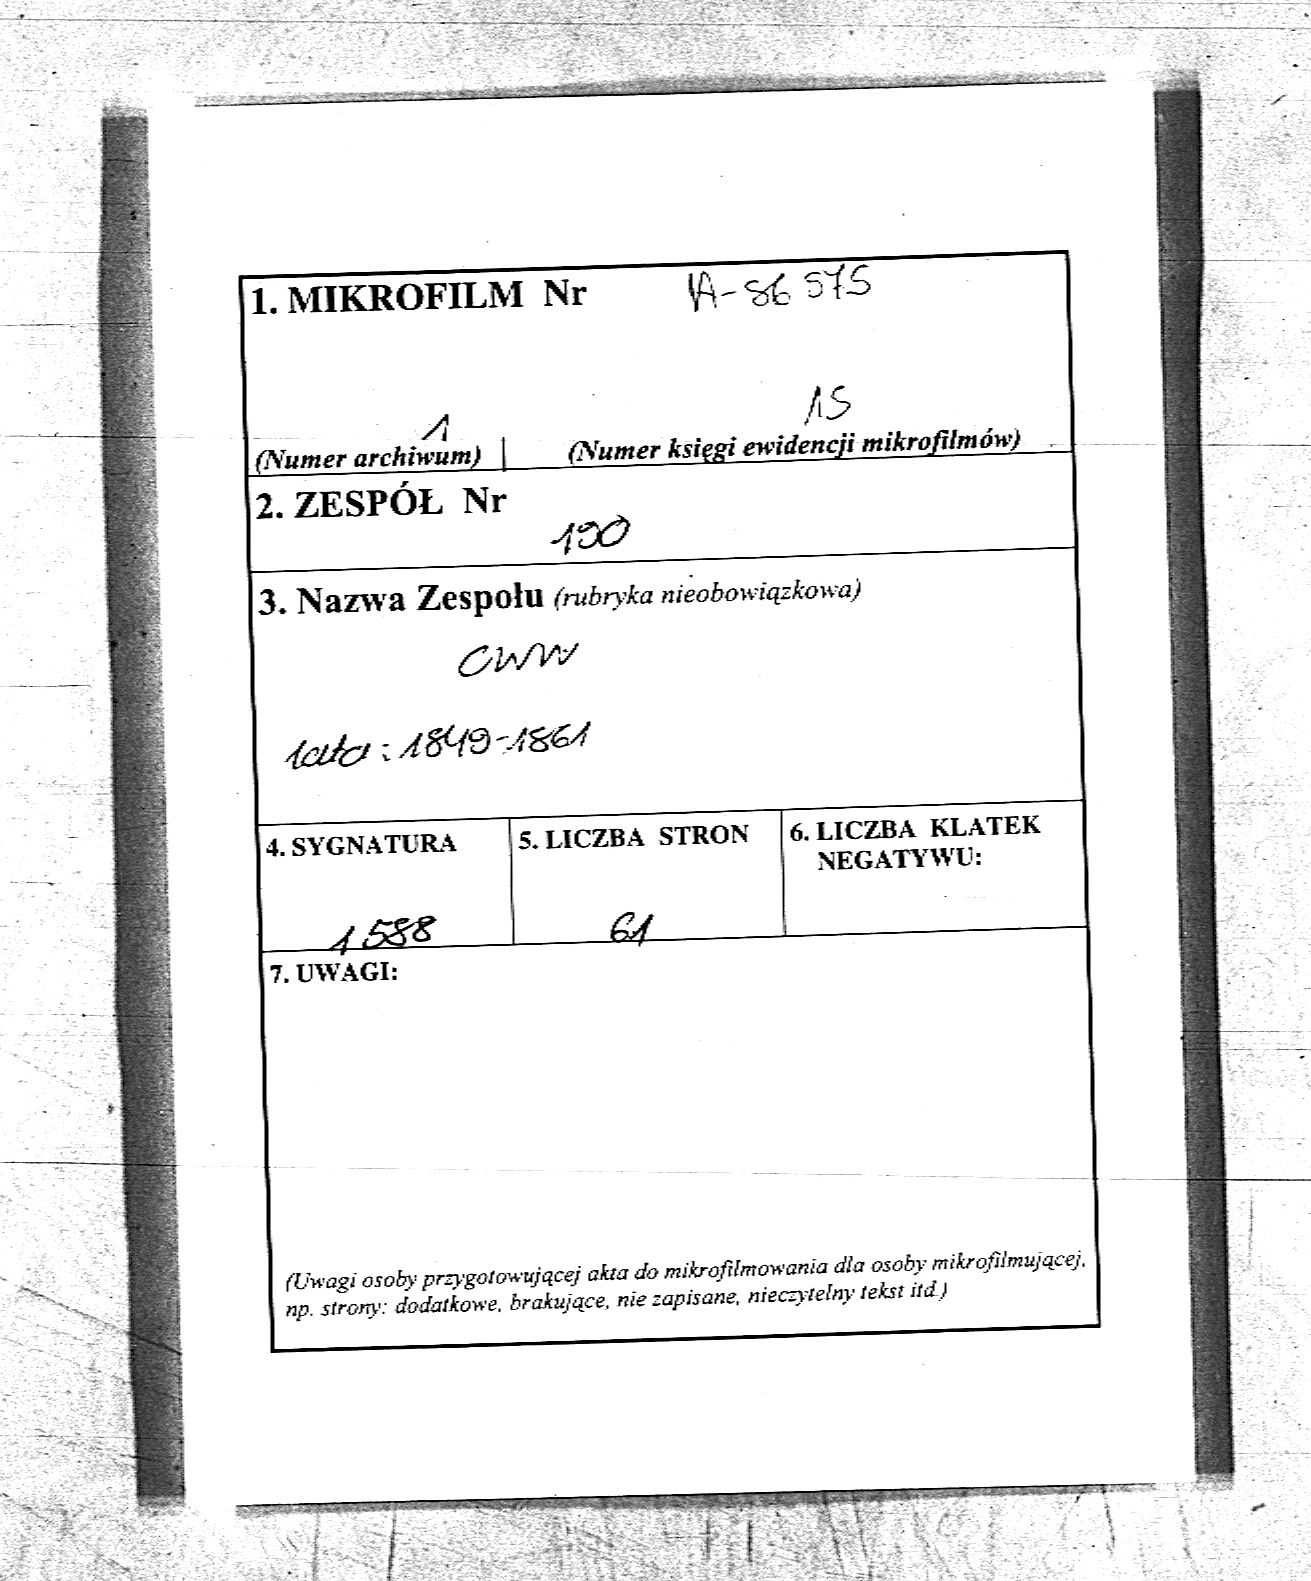 1. MIKROFILM Nr A-86 575
1 15
(Numer archiwum) (Numer księgi ewidencji mikrofilmów)
2. ZESPÓŁ Nr
190
3. Nazwa Zespołu (rubryka nieobowiązkowa)
CWW
lata: 1849-1861
4. SYGNATURA 5. LICZBA STRON 6. LICZBA KLATEK
NEGATYWU:
1588 61
7. UWAGI:
(Uwagi osoby przygotowującej akta do mikrofilmowania dla osoby mikrofilmującej,
np. strony: dodatkowe, brakujące, nie zapisane, nieczytelny tekst itd.)